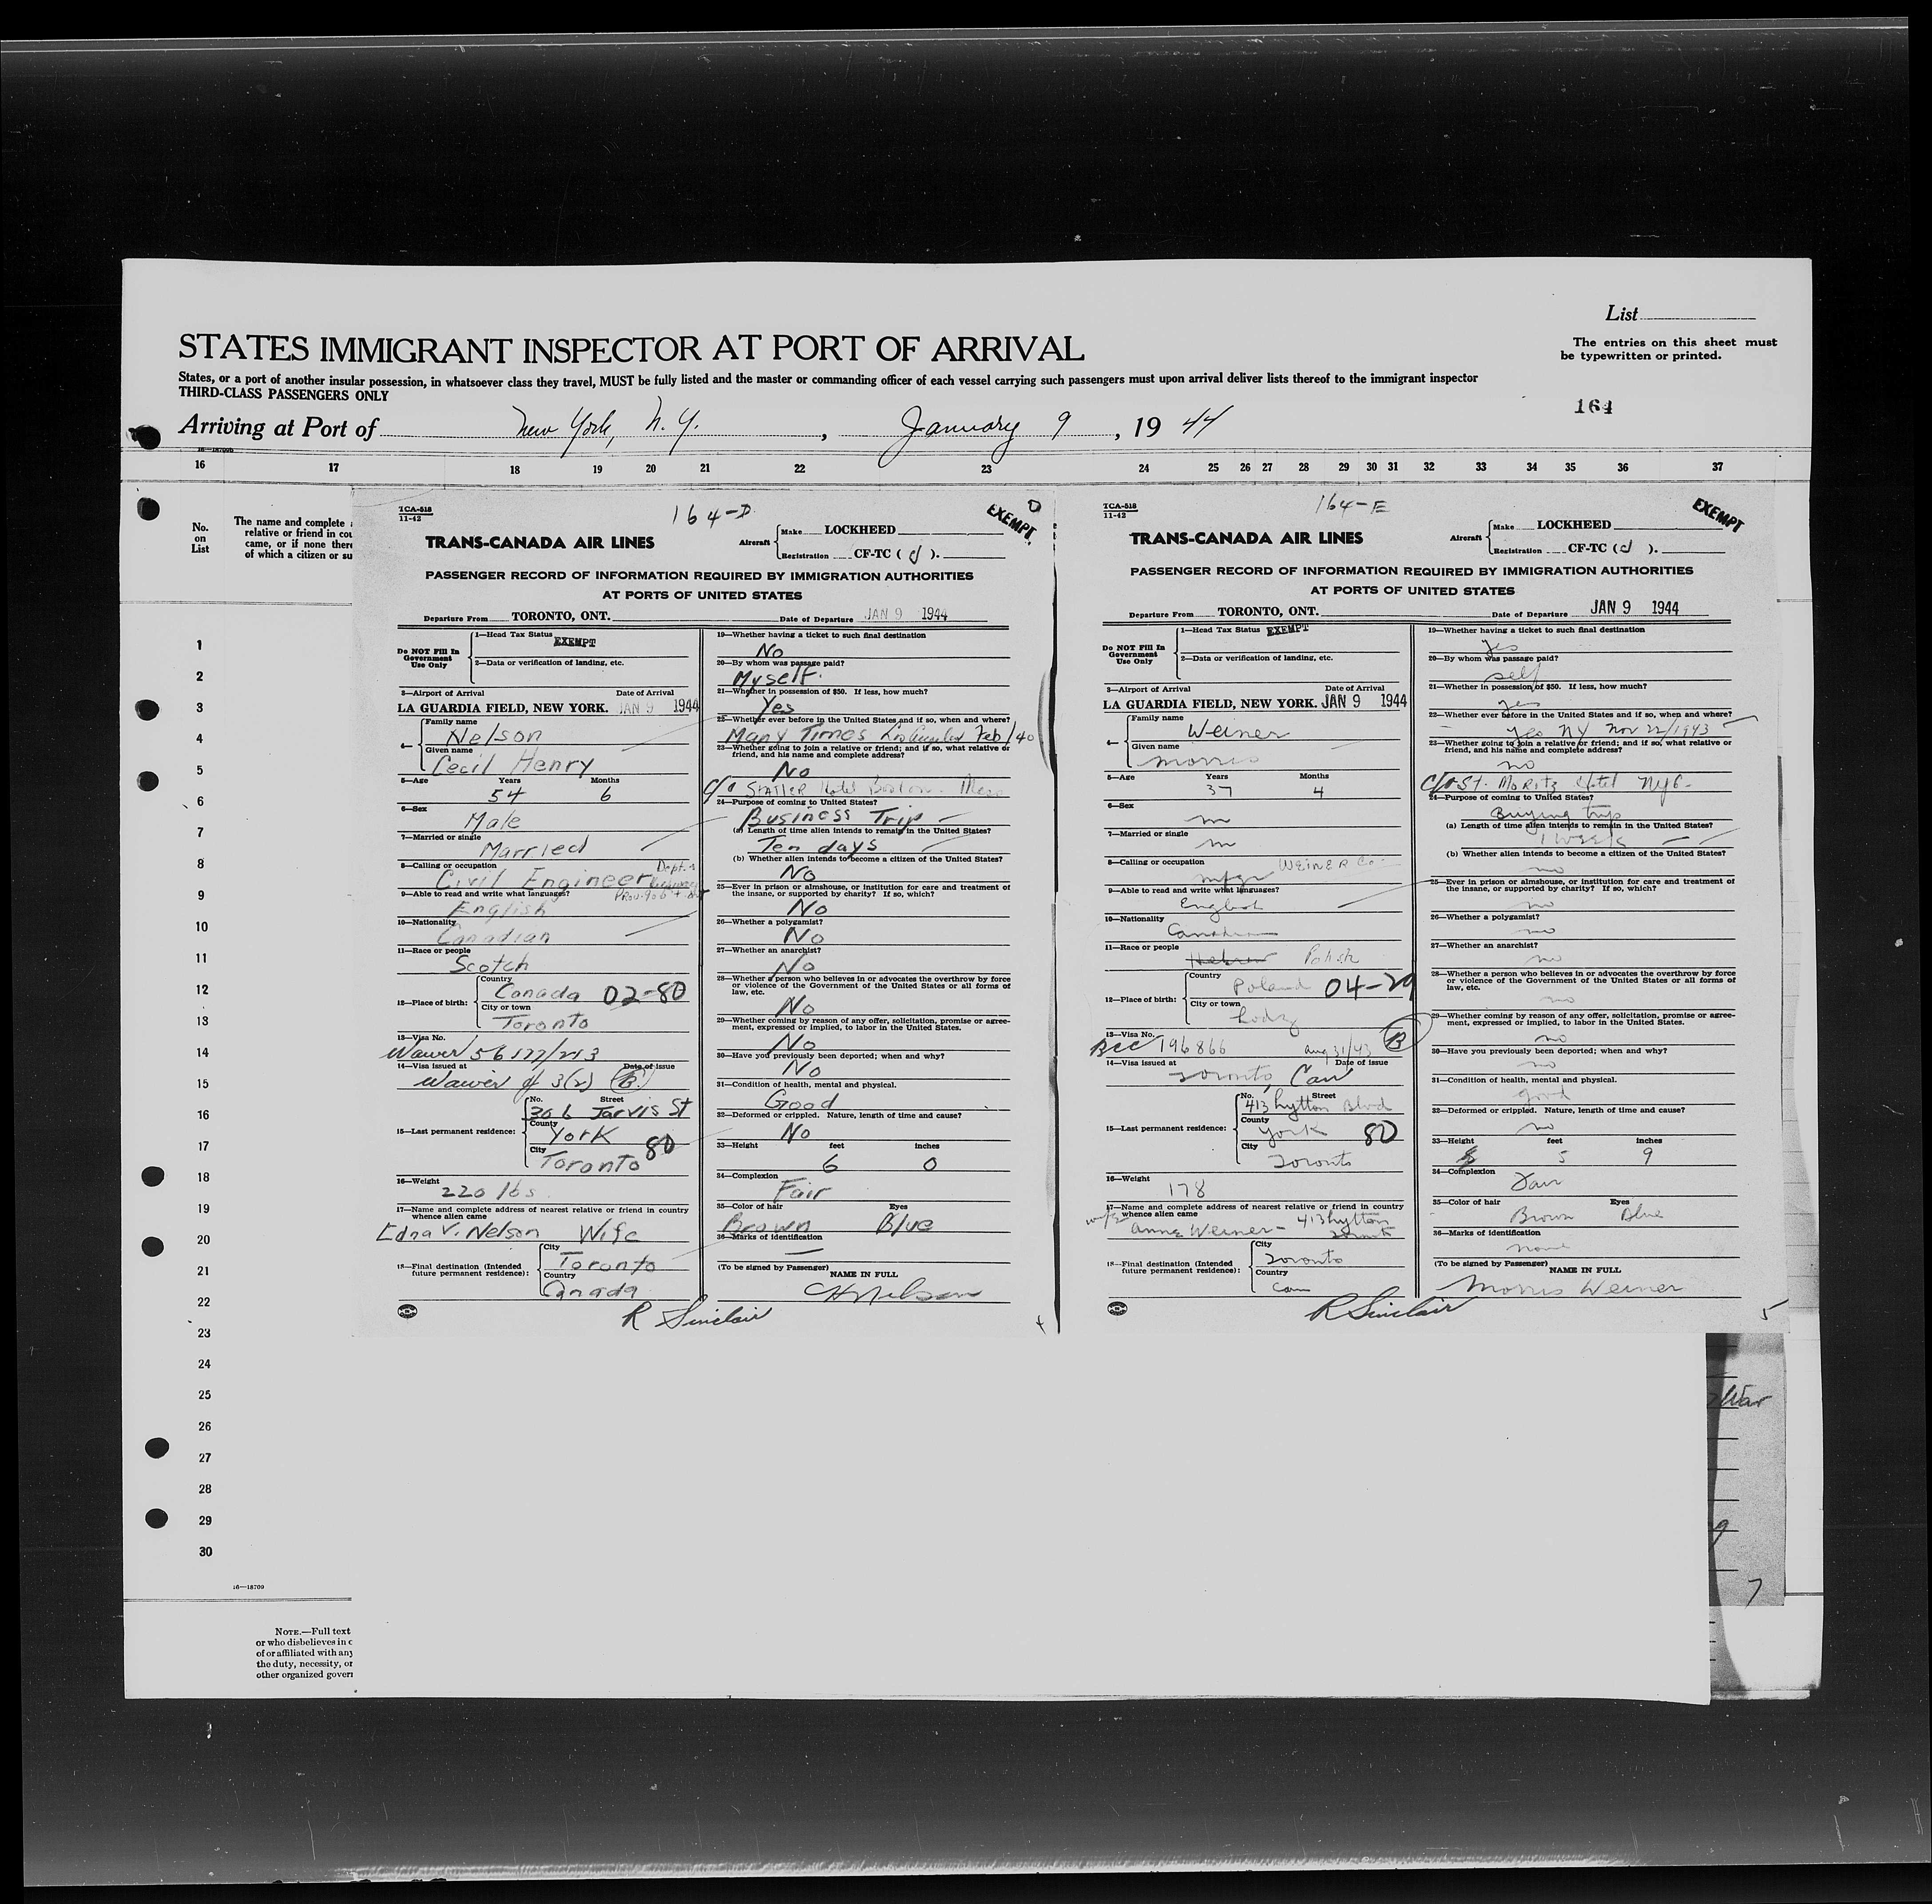 List
STATES IMMIGRANT INSPECTOR AT PORT OF ARRIVAL
The entries on this sheet must
be typewritten or printed.
States, or a port of another insular possession, in whatsoever class they travel, MUST be fully listed and the master or commanding officer of each vessel carrying such passengers must upon arrival deliver lists thereof to the immigrant inspector
THIRD-CLASS PASSENGERS ONLY
164
Arriving at Port of New York, N. Y. , January 9 , 19 44
16 17 18 19 20 21 22 23 24 25 26 27 28 29 30 31 32 33 34 35 36 37
No.
on
List
The name and complete
relative or friend in cou
came, or if none there
of which a citizen or su
1
2
3
4
5
6
7
8
9
10
11
12
13
14
15
16
17
18
19
20
21
22
23
24
25
26
27
28
29
30
16—18709
NOTE.—Full text
or who disbelieves in o
of or affiliated with any
the duty, necessity, or
other organized govern
TCA-518
11-42
164-D
EXEMPT
TRANS-CANADA AIR LINES
Aircraft
Make LOCKHEED
Registration CF-TC ( d ).
PASSENGER RECORD OF INFORMATION REQUIRED BY IMMIGRATION AUTHORITIES
AT PORTS OF UNITED STATES
Departure From TORONTO, ONT. Date of Departure JAN 9 1944
Do NOT Fill In
Government
Use Only
1—Head Tax Status EXEMPT
2—Data or verification of landing, etc.
3—Airport of Arrival Date of Arrival
LA GUARDIA FIELD, NEW YORK. JAN 9 1944
4—
Family name
Nelson
Given name
Cecil Henry
5—Age Years Months
54 6
6—Sex
Male
7—Married or single
Married
8—Calling or occupation
Civil Engineer
9—Able to read and write what languages?
English
10—Nationality
Canadian
11—Race or people
Scotch
12—Place of birth:
Country
Canada 02-80
City or town
Toronto
13—Visa No.
Waiver 56177/213
14—Visa issued at Date of issue
Waiver of 3(2) B
15—Last permanent residence:
No. Street
306 Jarvis St
County
York
City
Toronto 80
16—Weight
220 lbs.
17—Name and complete address of nearest relative or friend in country
whence alien came
Edna V. Nelson Wife
18—Final destination (Intended
future permanent residence):
City
Toronto
Country
Canada
19—Whether having a ticket to such final destination
No
20—By whom was passage paid?
Myself.
21—Whether in possession of $50. If less, how much?
Yes
22—Whether ever before in the United States and if so, when and where?
Many Times Feb/40
23—Whether going to join a relative or friend; and if so, what relative or
friend, and his name and complete address?
No
c/o Statler Hotel Boston Mass
24—Purpose of coming to United States?
Business Trip
(a) Length of time alien intends to remain in the United States?
Ten days
(b) Whether alien intends to become a citizen of the United States?
No
25—Ever in prison or almshouse, or institution for care and treatment of
the insane, or supported by charity? If so, which?
No
26—Whether a polygamist?
No
27—Whether an anarchist?
No
28—Whether a person who believes in or advocates the overthrow by force
or violence of the Government of the United States or all forms of
law, etc.
No
29—Whether coming by reason of any offer, solicitation, promise or agree-
ment, expressed or implied, to labor in the United States.
No
30—Have you previously been deported; when and why?
No
31—Condition of health, mental and physical.
Good
32—Deformed or crippled. Nature, length of time and cause?
No
33—Height feet inches
6 0
34—Complexion
Fair
35—Color of hair Eyes
Brown Blue
36—Marks of identification
—
(To be signed by Passenger)
NAME IN FULL
CHNelson
R Sinclair
TCA-518
11-42
164-E
EXEMPT
TRANS-CANADA AIR LINES
Aircraft
Make LOCKHEED
Registration CF-TC ( d ).
PASSENGER RECORD OF INFORMATION REQUIRED BY IMMIGRATION AUTHORITIES
AT PORTS OF UNITED STATES
Departure From TORONTO, ONT. Date of Departure JAN 9 1944
Do NOT Fill In
Government
Use Only
1—Head Tax Status EXEMPT
2—Data or verification of landing, etc.
3—Airport of Arrival Date of Arrival
LA GUARDIA FIELD, NEW YORK. JAN 9 1944
4—
Family name
Weiner
Given name
Morris
5—Age Years Months
37 4
6—Sex
m
7—Married or single
m
8—Calling or occupation WEINER Co
mfgr
9—Able to read and write what languages?
English
10—Nationality
Canadian
11—Race or people
Hebrew Polish
12—Place of birth:
Country
Poland 04-29
City or town
Lodz
13—Visa No.
BCC 196866 Aug 31/43 B
14—Visa issued at Date of issue
Toronto, Can
15—Last permanent residence:
No. Street
413 Lytton Blvd
County
York 80
City
Toronto
16—Weight
178
17—Name and complete address of nearest relative or friend in country
whence alien came
wife Anne Weiner - 413 Lytton
Toronto
18—Final destination (Intended
future permanent residence):
City
Toronto
Country
Can
19—Whether having a ticket to such final destination
yes
20—By whom was passage paid?
self
21—Whether in possession of $50. If less, how much?
yes
22—Whether ever before in the United States and if so, when and where?
yes NY Nov 22/1943
23—Whether going to join a relative or friend; and if so, what relative or
friend, and his name and complete address?
no
c/o St. Moritz Hotel NYC.
24—Purpose of coming to United States?
Buying trip
(a) Length of time alien intends to remain in the United States?
1 week
(b) Whether alien intends to become a citizen of the United States?
no
25—Ever in prison or almshouse, or institution for care and treatment of
the insane, or supported by charity? If so, which?
no
26—Whether a polygamist?
no
27—Whether an anarchist?
no
28—Whether a person who believes in or advocates the overthrow by force
or violence of the Government of the United States or all forms of
law, etc.
no
29—Whether coming by reason of any offer, solicitation, promise or agree-
ment, expressed or implied, to labor in the United States.
no
30—Have you previously been deported; when and why?
no
31—Condition of health, mental and physical.
good
32—Deformed or crippled. Nature, length of time and cause?
no
33—Height feet inches
5 9
34—Complexion
Fair
35—Color of hair Eyes
Brown Blue
36—Marks of identification
none
(To be signed by Passenger)
NAME IN FULL
Morris Weiner
R Sinclair
5
War
9
7